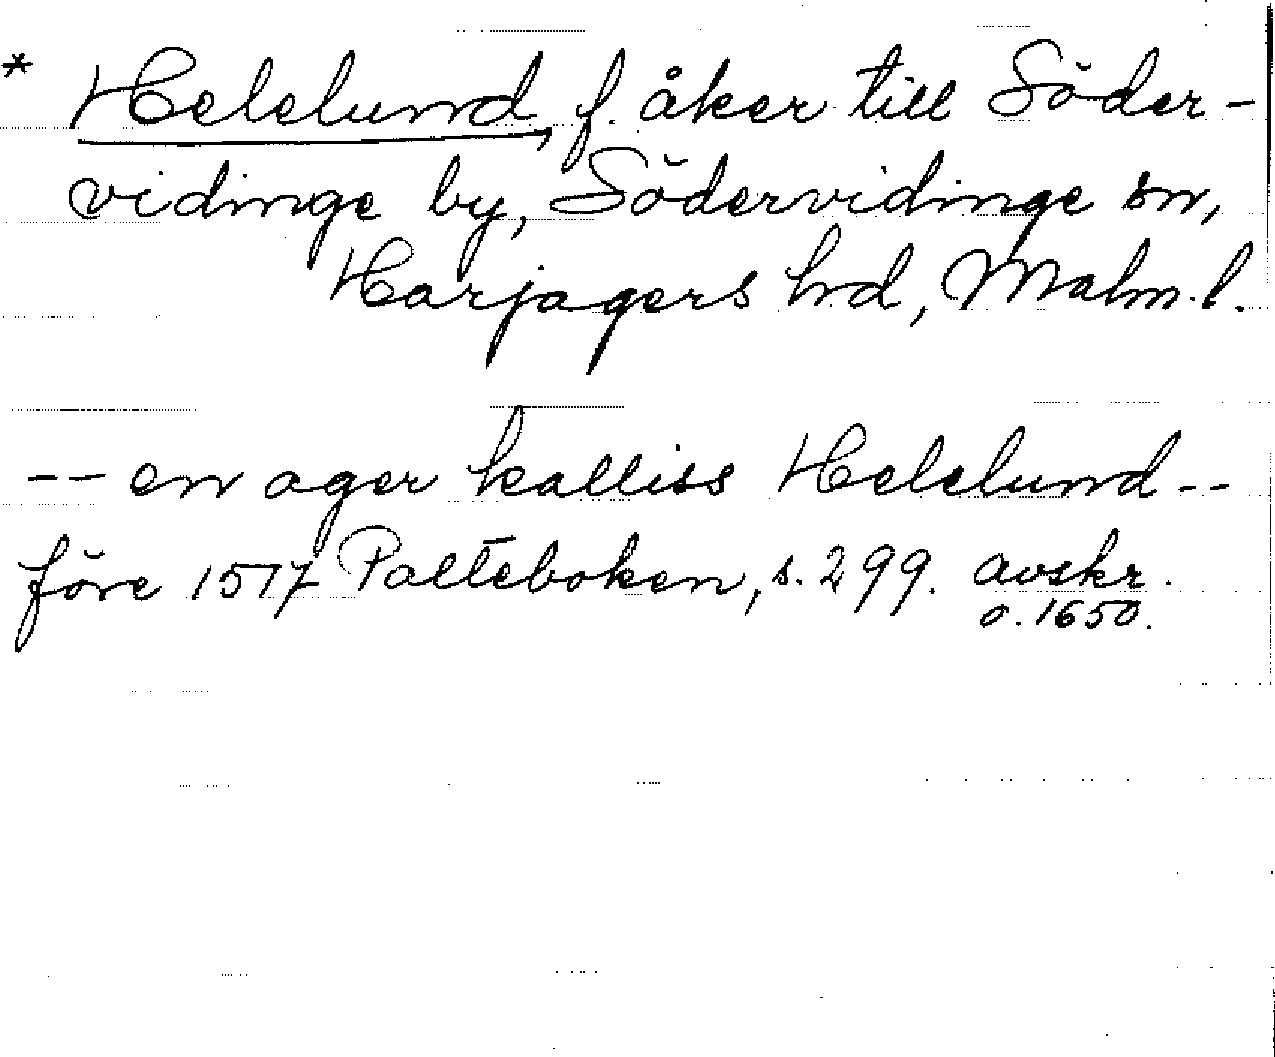 * Helelund, f. åker till Söder-
vidinge by, Södervidinge sn,
Harjagers hd, Malm. l.
-- en ager kalliss Helelund --
före 1517 Palteboken, s. 299. avskr.
o. 1650.